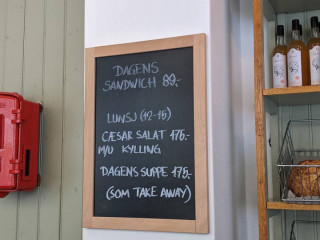 DAGENS
SANDWICH 89,-
LUNSJ (12-15)
CÆSAR SALAT 175,-
M/U KYLLING
DAGENS SUPPE 175,-
(SOM TAKE AWAY)